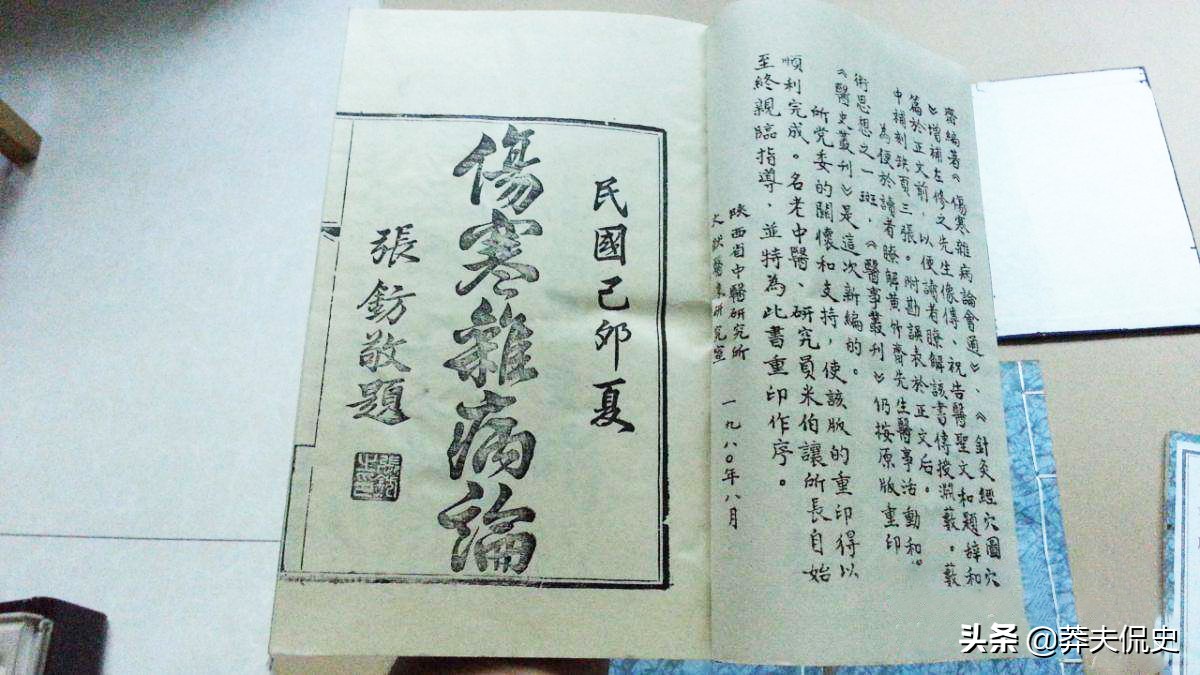 齋編著《傷寒雜病論會通》、《針灸經穴圖穴
》增補左修之先生像傳、祝告醫聖文和題辭和
篇於正文前，以便讀者瞭解該書傳授淵藪。藪
中補刻缺頁三張。附勘誤表於正文后。
為便於讀者瞭解黃竹齋先生醫事活動和。
術思想之一斑，《醫事叢刊》仍按原版重印
《醫史叢刊》是這次新編的。
所党委的關懷和支持，使該版的重印得以
順利完成。名老中醫、研究員米伯讓所長自始
至終親臨指導，並特為此書重印作序。
陝西省中醫研究所
文獻醫史研究室
一九八〇年八月
民國己卯夏
傷寒雜病論
張鈁敬題
張鈁之印
头条 @莽夫侃史